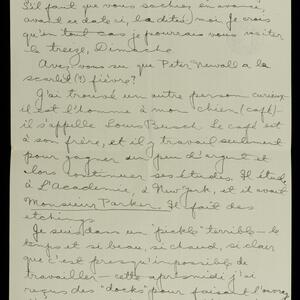 S'il faut que vous sachiez en avance,
avant ce date ci, la dites moi. Je crois
qu'en tout cas je pourrais vous visiter
le treize, Dimanche.
Avez vous su que Peter Newall a la
scarlet (?) fièvre?
J'ai trouvé un autre person curieux
il est l'homme à mon "chien (café)-
il s'appelle Louis Busch. Le café est
à son frère, et il y travail seulement
pour gagner un peu d'argent et
alors continuer ses études. Il étude
à L'Academie, à New York, et il avait
Monsieur Parker. Il fait des
etchings
Je suis dans un "pickle" terrible - le
temps et si beau, si chaud, si clair
que c'est presqu'impossible de
travailler - cette apresmidi j'ai
reçus des "docks" pour faisant l'ouvrage